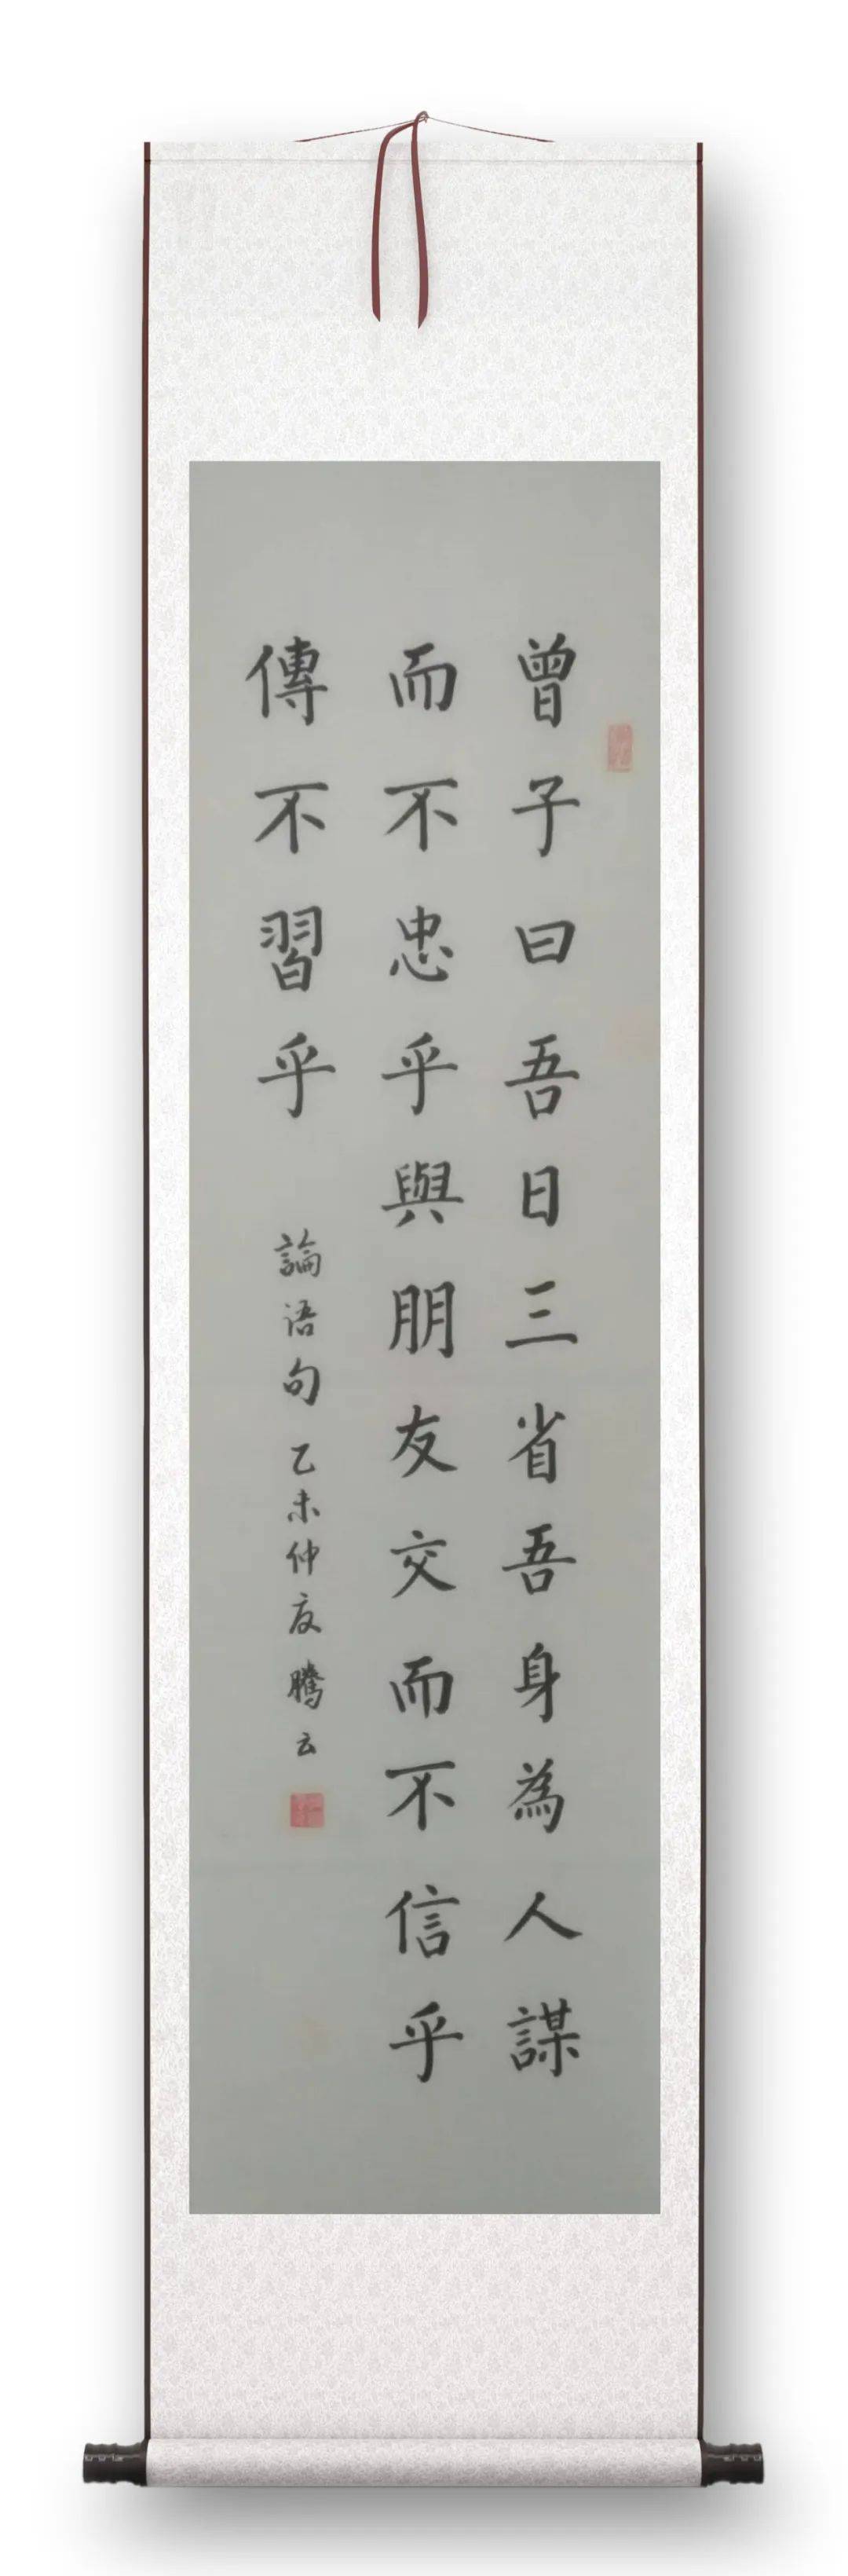 曾子曰吾日三省吾身為人謀
而不忠乎與朋友交而不信乎
傳不習乎
論语句 乙未仲夏 騰云